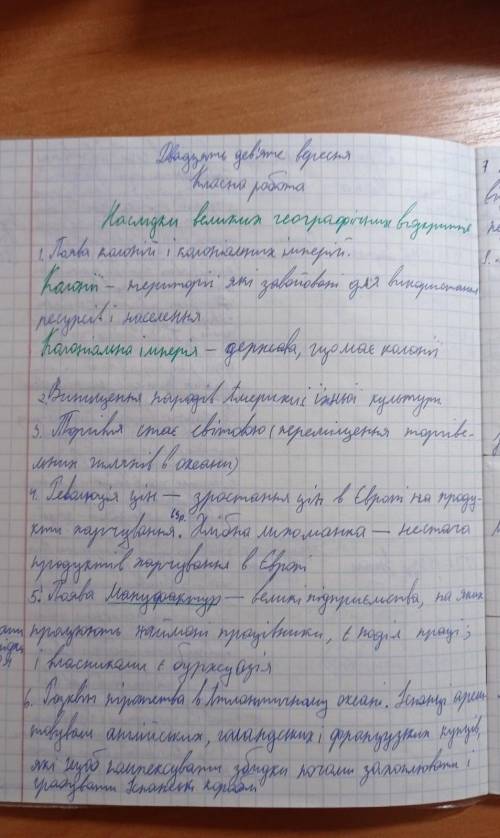 Двадцять дев'яте вересня
Класна робота
Наслідки великих географічних відкриттів
1. Поява колоній і колоніальних імперій.
Колонії – території які завойовані для використання
ресурсів і населення
Колоніальна імперія – держава, що має колонії
2. Винищення народів Америки і їхньої культури
3. Торгівля стає світовою (переміщення торгіве-
льних шляхів в океани)
4. Революція цін — зростання цін в Європі на проду-
кти харчування. Хлібна лихоманка — нестача
продуктів харчування в Європі
5. Поява Мануфактур — великі підприємства, на яких
працюють наймані працівники, є поділ праці;
і власниками є буржуазія
6. Розквіт піратства в Атлантичному океані. Іспанці
англійських, голандських і французьких купців,
які щоб збитки почали захоплювати і
грабувати Іспанські кораблі